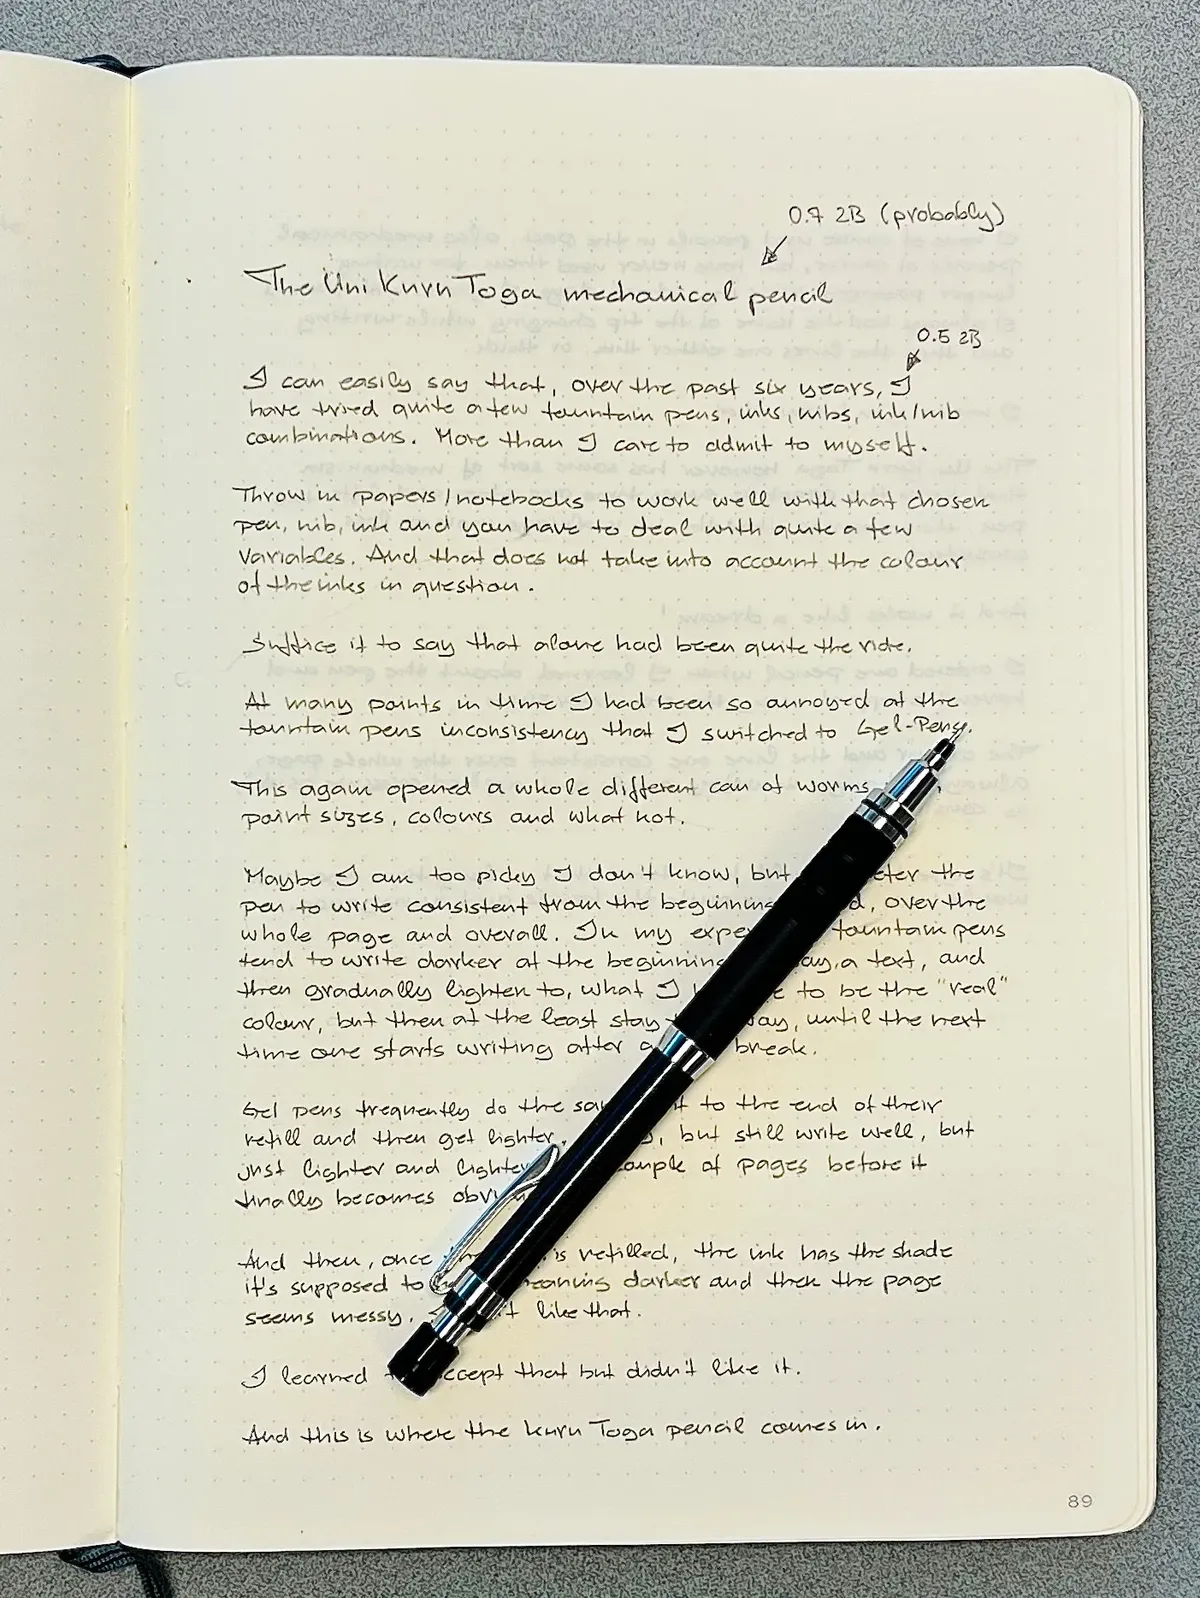 0.7 2B (probably)
The Uni Kuru Toga mechanical pencil
0.5 2B
I can easily say that, over the past six years, I
have tried quite a few fountain pens, inks, nibs, ink/nib
combinations. More than I care to admit to myself.
Throw in papers/notebooks to work well with that chosen
pen, nib, ink and you have to deal with quite a few
variables. And that does not take into account the colour
of the inks in question.
Suffice it to say that alone had been quite the ride.
At many points in time I had been so annoyed at the
fountain pens inconsistency that I switched to Gel-Pens.
This again opened a whole different can of worms
point sizes, colours and what not.
Maybe I am too picky I don't know, but the
pen to write consistent from the beginning, over the
whole page and overall. In my fountain pens
tend to write darker at the beginning a text, and
then gradually lighten to, what I to be the "real"
colour, but then at the least stay way, until the next
time one starts writing after a break.
Gel pens frequently do the to the end of their
refill and then get lighter, but still write well, but
just lighter and lighter couple of pages before it
finally becomes
And then, once is refilled, the ink has the shade
it's supposed to meaning darker and then the page
seems messy. like that.
I learned accept that but didn't like it.
And this is where the Kuru Toga pencil comes in.
89